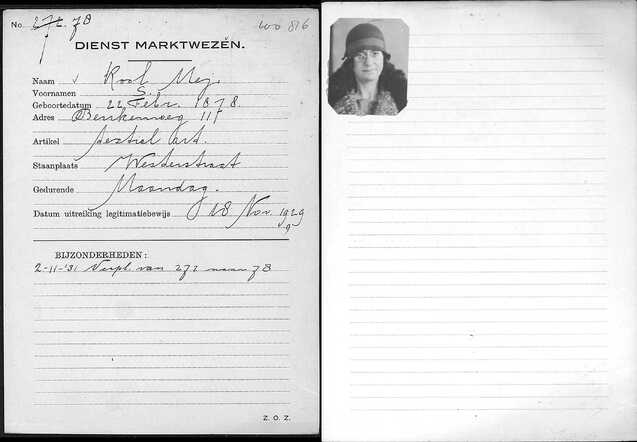 No. 272 78
DIENST MARKTWEZEN.
Naam v Kool Mej.
Voornamen S.
Geboortedatum 22 Febr. 1878.
Adres 115
Artikel Textiel Art.
Staanplaats Westerstraat
Gedurende Maandag.
Datum uitreiking legitimatiebewijs 18 Nov. 1929
BIJZONDERHEDEN:
2-11-'31 Verpl. van 272 naar 78
Z. O. Z.